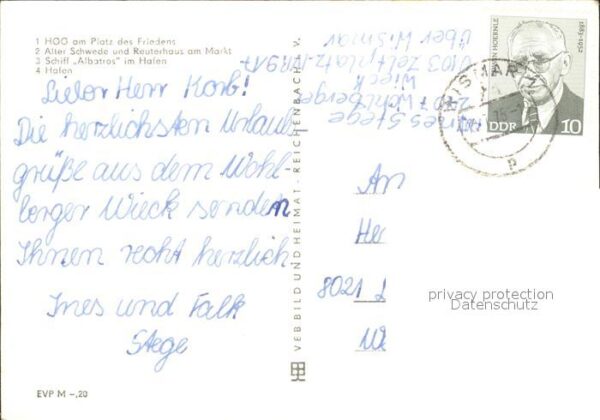 1 HOG am Platz des Friedens
2 Alter Schwede und Reuterhaus am Markt
3 Schiff „Albatros" im Hafen
4 Hafen
Lieber Herr Korb!
Die herzlichsten Urlaubs
grüße aus dem Wohl-
berger Wieck senden
Ihnen recht herzlich
Ines und Falk
Stege
EVP M –,20
VEB BILD UND HEIMAT, REICHENBACH i. V.
Ines Stege
2401 Wohlberger
Wieck
Zeltplatz
über Wismar
HOERNLE
1883-1952
DDR
10
WISMAR
An
He
8021
privacy protection
Datenschutz